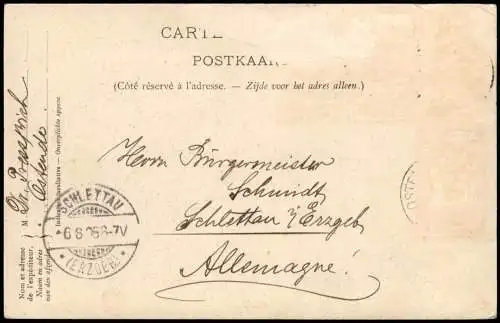 CARTE
POSTKAAR
(Côté réservé à l'adresse. — Zijde voor het adres alleen.)
Herrn Bürgermeister
Schmidt
Schlettau i/Erzgeb
Allemagne!
SCHLETTAU
6 8 06 6-7V
(ERZGEB.)
OSTEN
Ostende
M
Nom et adresse
de l'expéditeur.
Naam en adres
van den afzender.
Indications facultatives — Onverplichte opgave